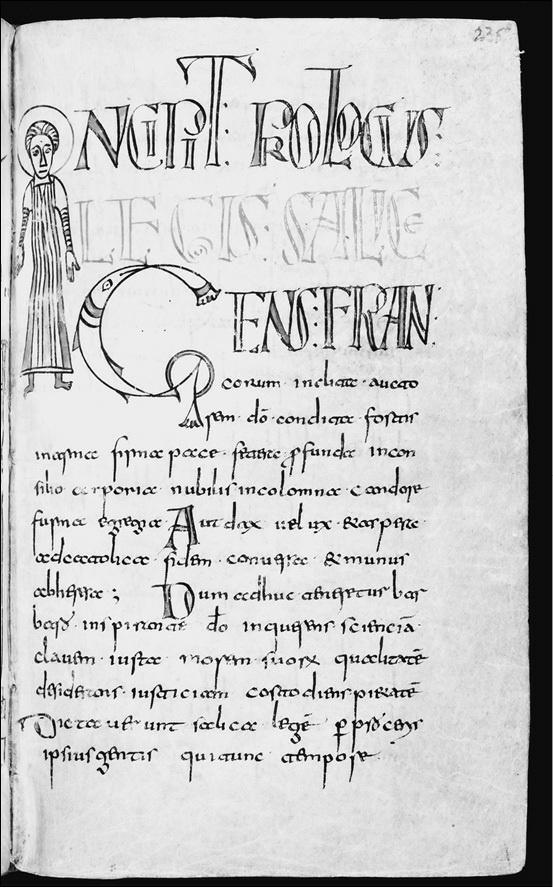 235
INCIPIT PROLOGUS:
LEGIS: SALICE
GENS: FRAN
corum · inclita · aucto
rem · dō · condita · fortis
in arma firma pace · fetere · pfunda in con
silio corporia nubilis incolomna candore
furma egregia Aut dax uelux · & aspere ·
ad catolica fidem · conuersa · & munus
ab heresa ; Dum adhuc teneretur bar
inspirante do inquerens scienciā ·
clauem · iusta morem suorx qualitatē
desiderans · iusticiam costodiens pietatē
Dictauerunt salica legē p proceris
ipsius gentis qui tunc tempore